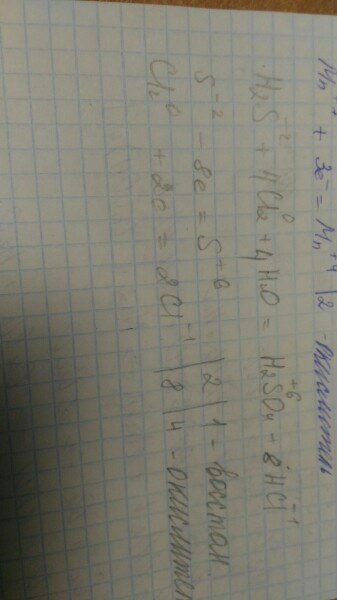 Mn⁺⁷ + 3e⁻ = Mn⁺⁴ | 2 - окислитель
H₂S⁻² + 4Cl₂⁰ + 4H₂O = H₂S⁺⁶O₄ + 8HCl⁻¹
S⁻² - 8e = S⁺⁶ | 2 | 1 - восстан.
Cl₂⁰ + 2e = 2Cl⁻¹ | 8 | 4 - окислител